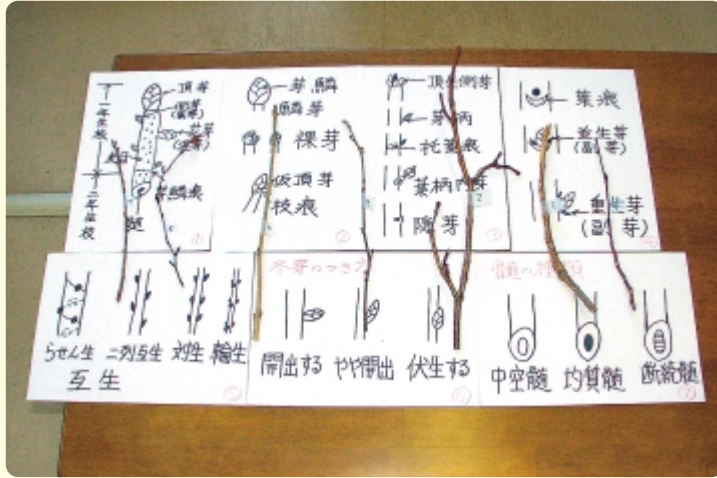 一年生枝
二年生枝
頂芽
葉痕
芽鱗痕
①
芽鱗
鱗芽
裸芽
仮頂芽
枝痕
②
頂生側芽
芽柄
托葉痕
葉柄内芽
隠芽
2
③
葉痕
並生芽
(副芽)
重生芽
(副芽)
④
らせん生
二列互生
対生
輪生
互生
冬芽のつき方
開出する
やや開出
伏生する
髄の種類
中空髄
均質髄
断続髄